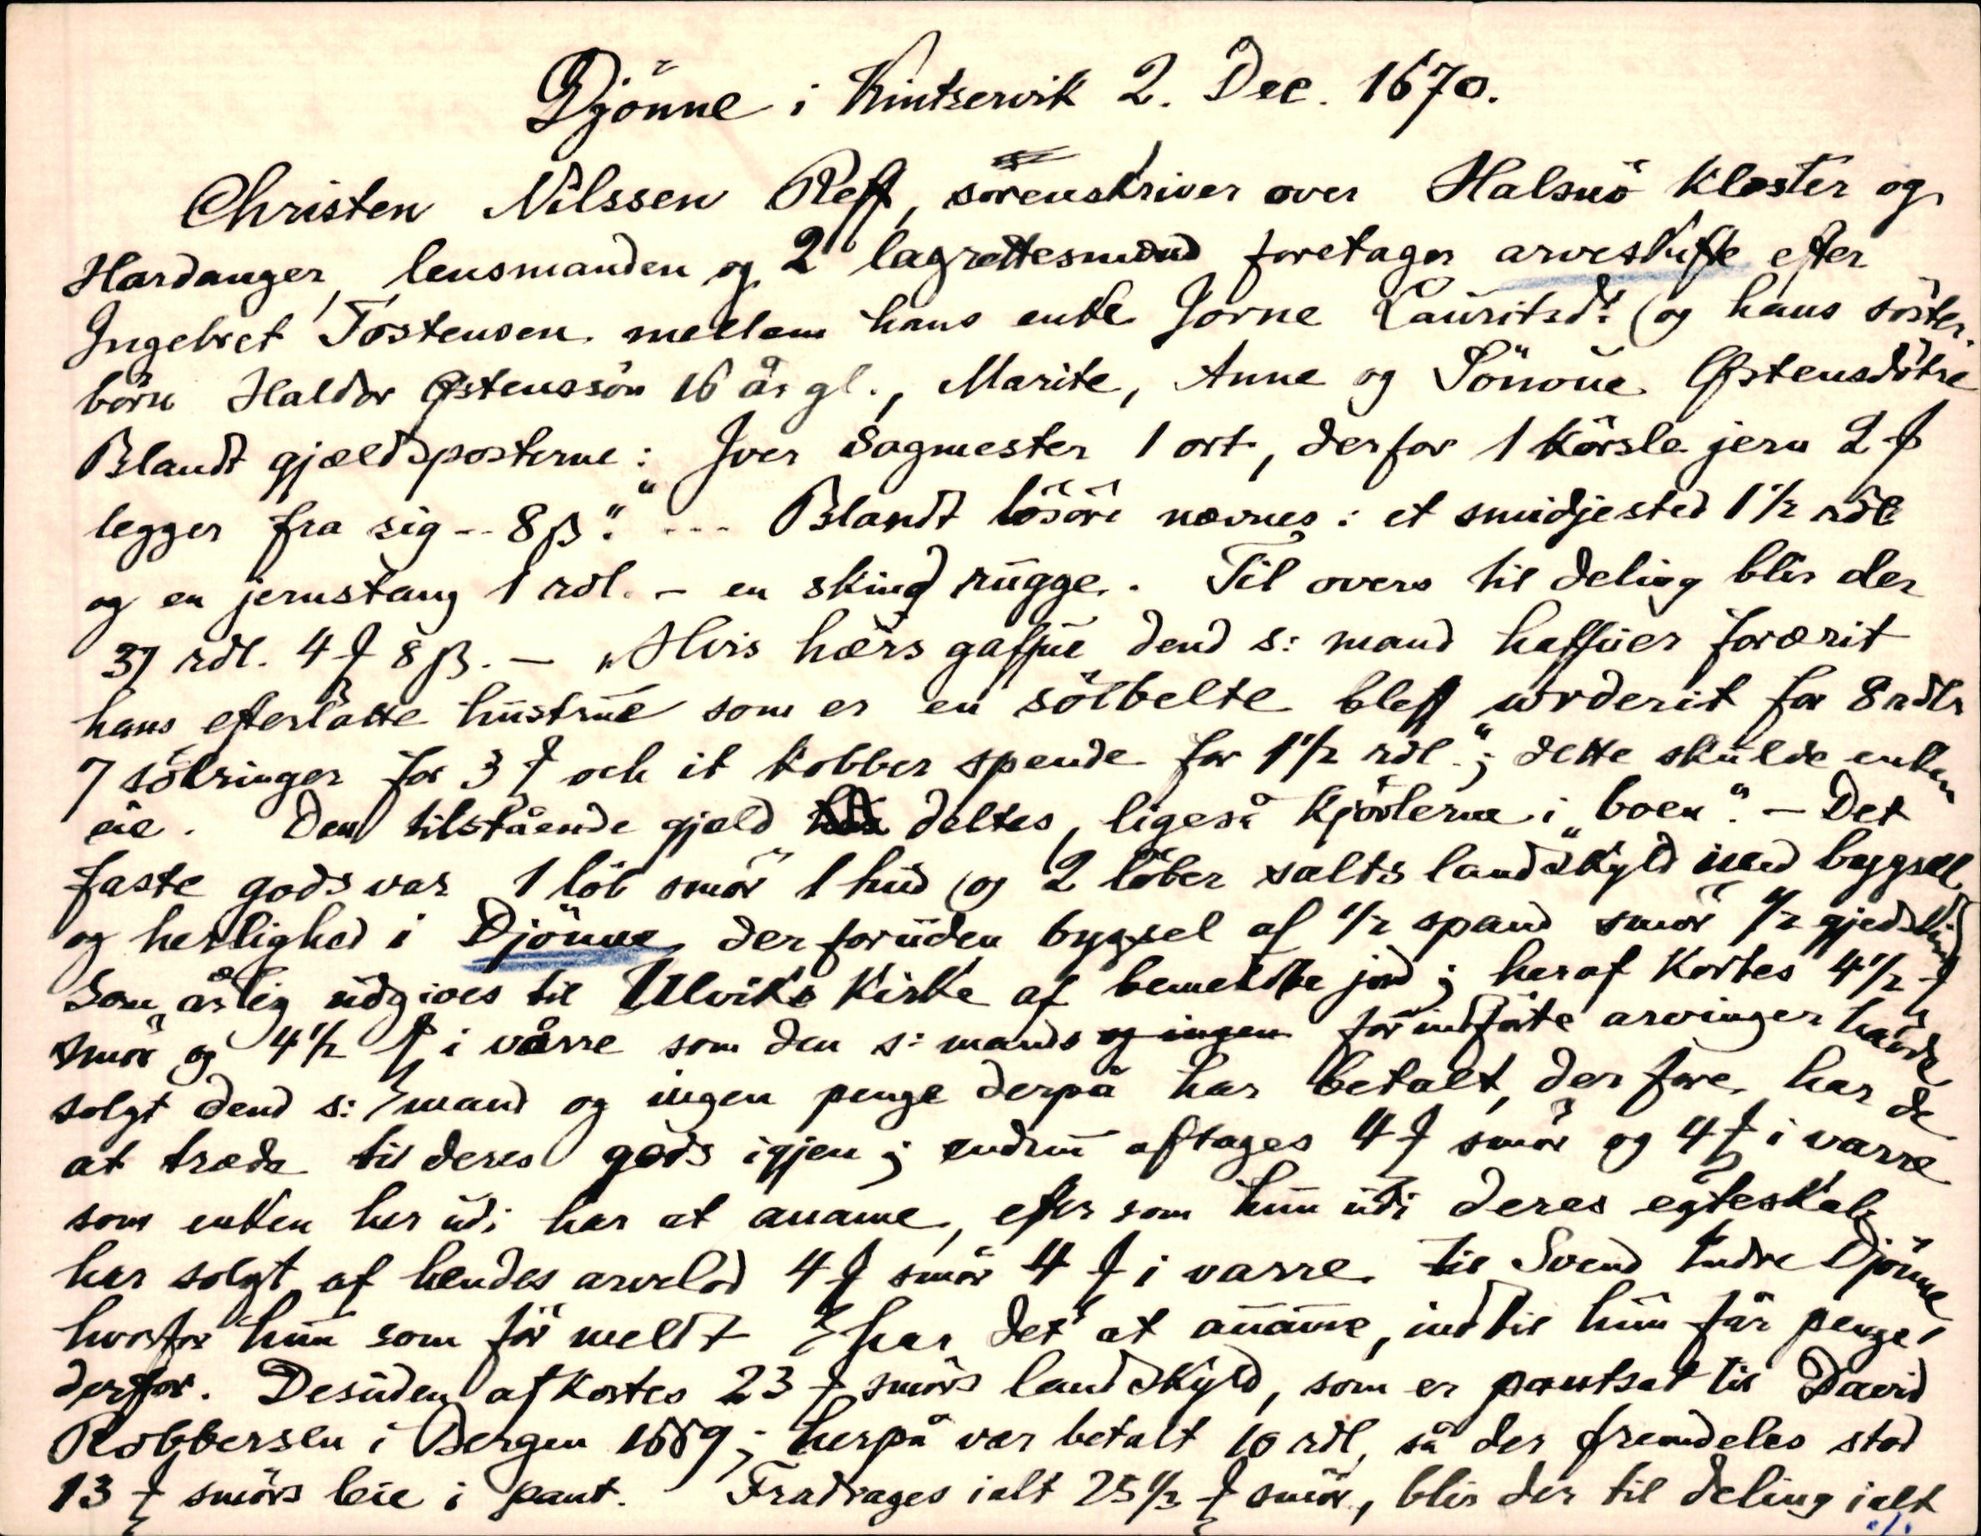 Djönne i Kintservik 2. Dec. 1670.
Christen Nilssen Reff, sörenskriver over Halsnö kloster og
Hardanger, lensmanden og 2 lagrettesmænd foretager arveskifte efter
Ingebret Tostensen mellem hans enke Jorne Lauritsdt. og hans söster-
börn Haldor Østenssön 16 år gl., Marite, Anne og Sönoue Østensdötre
Blandt gjældsposterne: "Iver Sagmester 1 ort, derfor 1 körsle jern 2 ℔
legger fra sig -- 8 β." --- Blandt lösöre nævnes: et smidjested 1 1/2 rdlr
og en jernstang 1 rdl. - en skind rugge. Til overs til deling blir der
37 rdl. 4 ℔ 8 β. - "Hvis hærs gaffue dend s: mand haffuer forærit
hans efterlatte hustrue som er en sölbelte bleff wrderit for 8 rdlr
7 sölringer for 3 ℔ och it kobber spende for 1 1/2 rdl."; dette skulde enken
eie. Den tilstående gjæld deltes, ligeså kjörlerne i "boen". - Det
faste gods var 1 löb smör 1 hud og 2 löber salts landskyld med bygsel
og herlighed i Djönne, der foruden bygsel af 1/2 spand smör 1/2 gjedskind
som årlig udgives til Ulviks kirke af bemeldte jord; heraf kortes 4 1/2 ℔
smör og 4 1/2 ℔ i varre som den s: mands og ingen för indförte arvinger havde
solgt dend s: mand og ingen penge derpå har betalt, der fore har de
at træde til deres gods igjen; endnu aftages 4 ℔ smör og 4 ℔ i varre
som enken her udi har at aname, efter som hun udi deres egteskab
har solgt af hendes arvelod 4 ℔ smör 4 ℔ i varre til Svend Indre Djönne
hvorfor hun som för meldt har det at aname, indtil hun får penge
derfor. Desuden afkortes 23 ℔ smörs landskyld, som er pantsat til David
Robbersen i Bergen 1669; herpå var betalt 10 rdl, så der fremdeles stod
13 ℔ smörs leie i pant. Fradrages ialt 25 1/2 ℔ smör, blir der til deling ialt